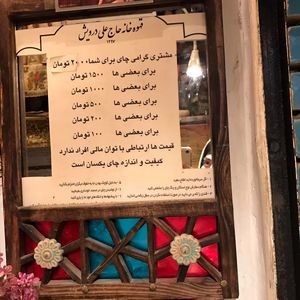 قهوه خانه حاج علی درویش
۱۲۹۷
مشتری گرامی چای برای شما ۲۰۰۰ تومان
برای بعضی ها ۱۵۰۰ تومان
برای بعضی ها ۱۰۰۰ تومان
برای بعضی ها ۵۰۰ تومان
برای بعضی ها ۲۰۰ تومان
برای بعضی ها ۱۰۰ تومان
قیمت ها ارتباطی با توان مالی افراد ندارد
کیفیت و اندازه چای یکسان است